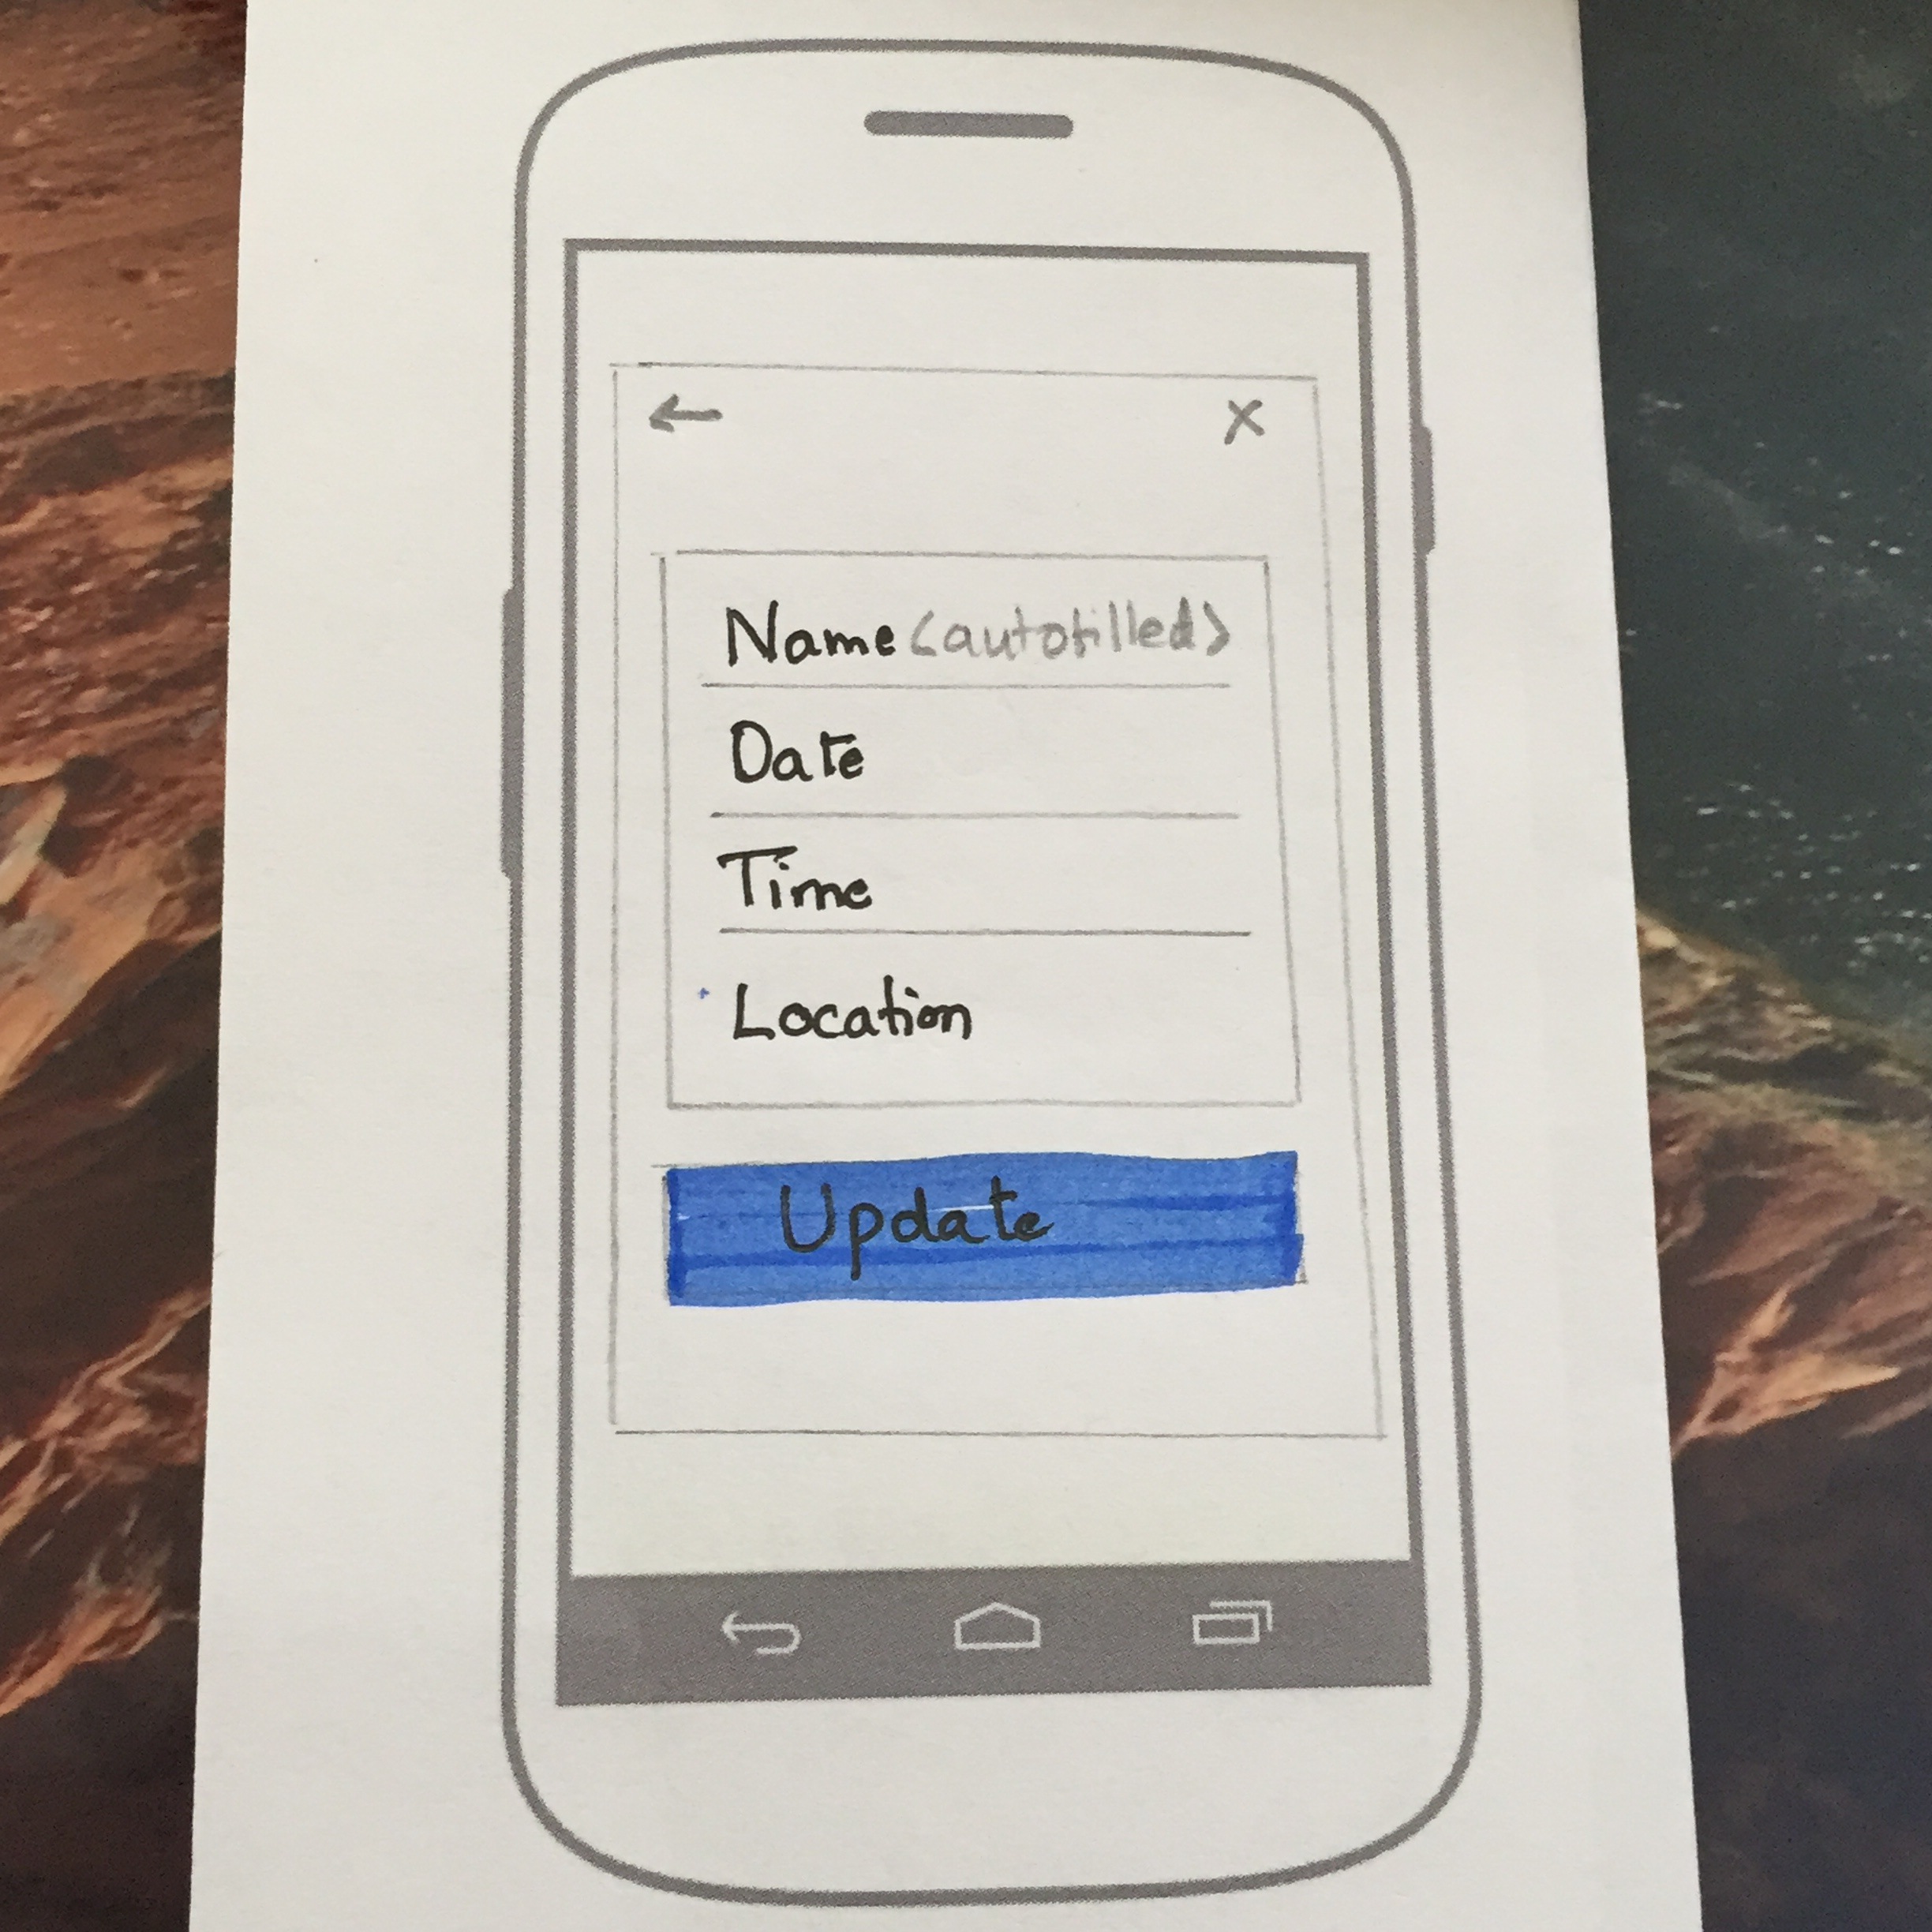 X
Name <autofilled>
Date
Time
Location
Update